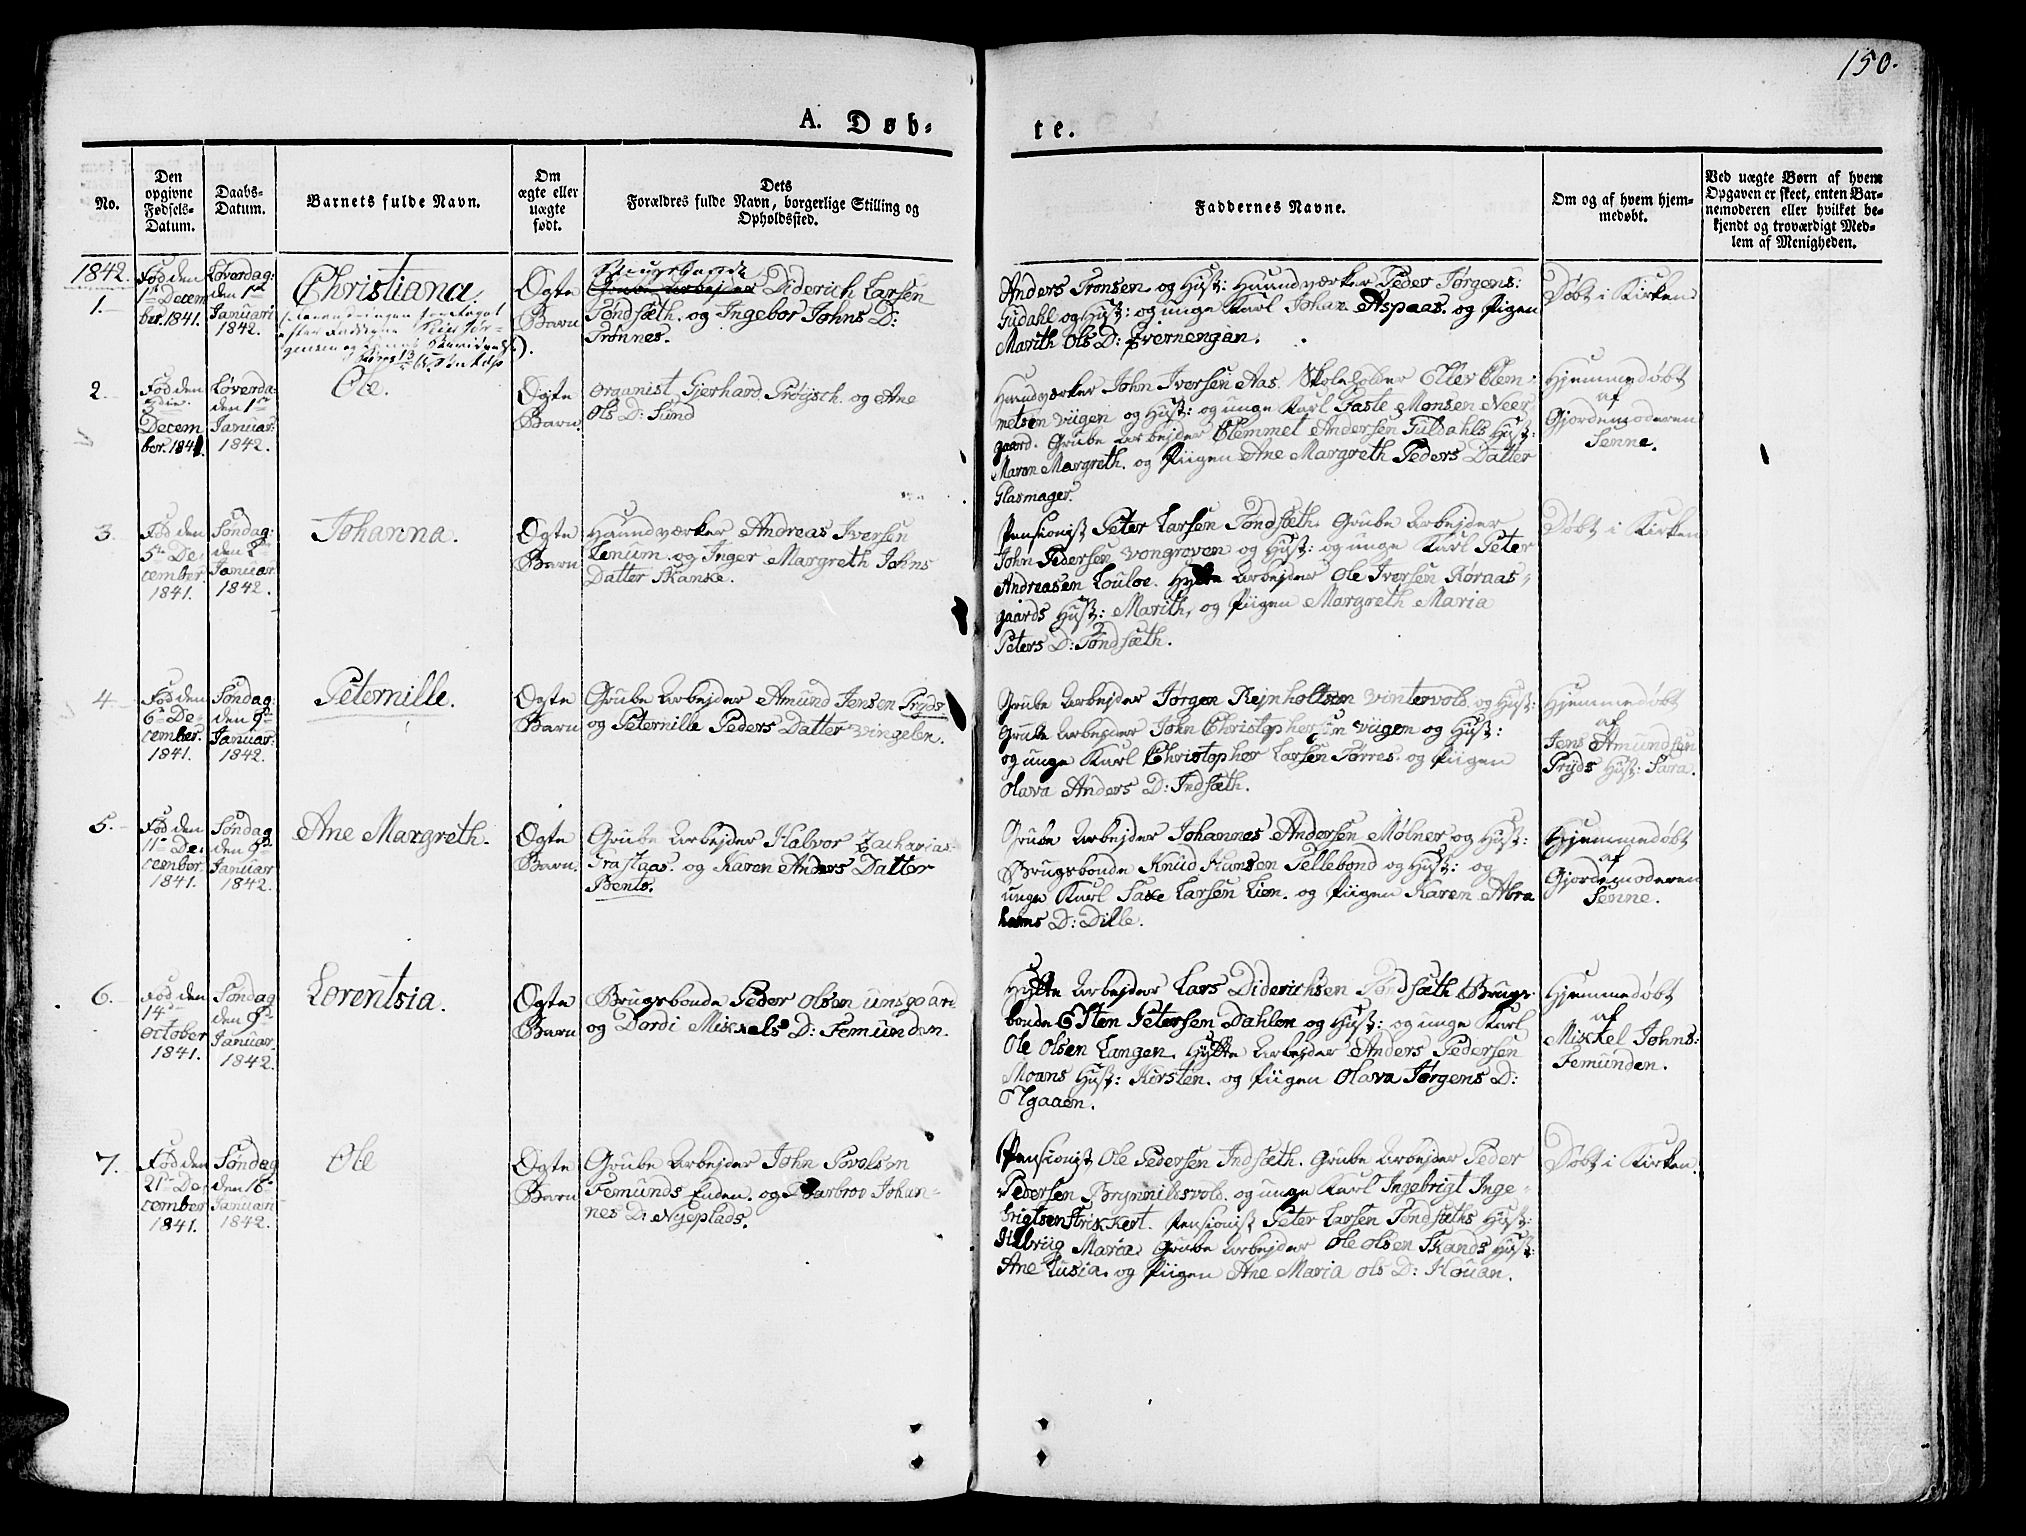 150.
A. Døb-
te.
No.
Den opgivne Fødsels-Datum.
Daabs-Datum.
Barnets fulde Navn.
Om ægte eller uægte født.
Dets Forældres fulde Navn, borgerlige Stilling og Opholdssted.
Faddernes Navne.
Om og af hvem hjem-
medøbt.
Ved uægte Børn af hvem
Opgaven er skeet, enten Bar-
nemoderen eller hvilket be-
kjendt og troværdigt Med-
lem af Menigheden.
1842.
1.
Fød den
1te Decem
ber. 1841.
Løverdag:
den 1te
Januari
1842.
Christiana.
Ægte
Barn
Grube Arbejder Diderich Larsen
Tøndsæth. og Ingebor Johns D:
Trønnes.
Anders Tronsen og Hust: Haandværker Peder Jørgens:
Guldahl og Hust: og unge Karl Johan Aspaas. og Pigen
Marith Ols D: Evernengan.
Døbt i Kirken
2.
Fød den
Decem
ber. 1841.
Løverda:
den 1te
Januar.
1842.
Ole.
Ægte
Barn.
Organist Gjerhard Prøysch. og Ane
Ols D: Sund
Haandværker John Iversen Aas. Skoleholder Ellev Clem-
metsen Viigen og Hust: og unge Karl Faste Monsen Neer
gaard. Grube Arbejder Clemmet Andersen Guldahls Hust:
Maren Margreth. og Piigen Ane Margreth Peders Datter
Glasmager.
Hjemmedøbt
af
Gjordemoderen
Senne.
3.
Fød den
5te De-
cember.
1841.
Søndag:
den 2den
Januar
1842.
Johanna.
Ægte
Barn
Haandværker Andreas Iversen
Lenum. og Inger Margreth Johns
Datter Skanke.
Pensionist Peter Larsen Tøndsæth. Grube Arbejder
John Pedersen Vongraven og Hust: og unge Karl Peter
Andreasen Louloe. Hytte Arbejder Ole Iversen Røraas-
gaards Hust: Marith, og Piigen Margreth Maria
Peters D: Tøndsæth.
Døbt i Kirken
4.
Fød den
6te De-
cember.
1841.
Søndag
den 9de
Januar:
1842.
Peternille.
Ægte
Barn
Grube Arbejder Amund Jensen Pryds
og Peternille Peders Datter Vingelen.
Grube Arbejder Jørgen Rejnholtsen Vintervold. og Hust:
Grube Arbejder John Christophersen Viigen og Hust:
og unge Karl Christopher Larsen Tørres. og Piigen
Olava Anders D: Indsæth.
Hjemmedøbt
af
Jens Amundsen
Pryds Hust: Sara.
5.
Fød den
11te De-
cember.
1841.
Søndag
den 9de
Januar
1842.
Ane Margreth.
Ægte
Barn.
Grube Arbejder Halvor Zacharias-
Grastaas. og Karen Anders Datter
Bents.
Grube Arbejder Johannes Andersen Mølner og Hust:
Brugsbonde Knud Hansen Pellebond og Hust: og
unge Karl Saxe Larsen Lien. og Piigen Karen Abra
hams D: Dille.
Hjemmedøbt
af
Gjordemoderen
Senne.
6.
Fød den
14de
October
1841.
Søndag
den 9de
Januar
1842.
Lorentsia.
Ægte
Barn
Brugsbonde Peder Olsen Unsgaard
og Dordi Mikkels D: Femunden.
Hytte Arbejder Lars Diderichsen Tøndsæth. Brugs-
bonde Esten Petersen Dahlen og Hust: og unge Karl
Ole Olsen Langen. Hytte Arbejder Anders Pedersen
Moans Hust: Kirsten. og Piigen Olava Jørgens D:
Hjemmedøbt
af
Mikkel Johns:
Femunden.
7.
Fød den
21de De-
cember
1841.
Søndag
den 16de
Januari
1842.
Ole
Ægte
Barn.
Grube Arbejder John Povelsen
Femunds Enden. og Barbroe Johan-
nes D: Nyeplads.
Pensionist Ole Pedersen Indsæth. Grube Arbejder Peder
Pedersen Brynnilsvold. og unge Karl Ingebrigt Inge-
brigtsen Strikkert. Pensionist Peter Larsen Tøndsæths Hust:
Maria. Grube Arbejder Ole Olsen Skands Hust:
Ane Lusia. og Piigen Ane Maria Ols D: Houan.
Døbt i Kirken.